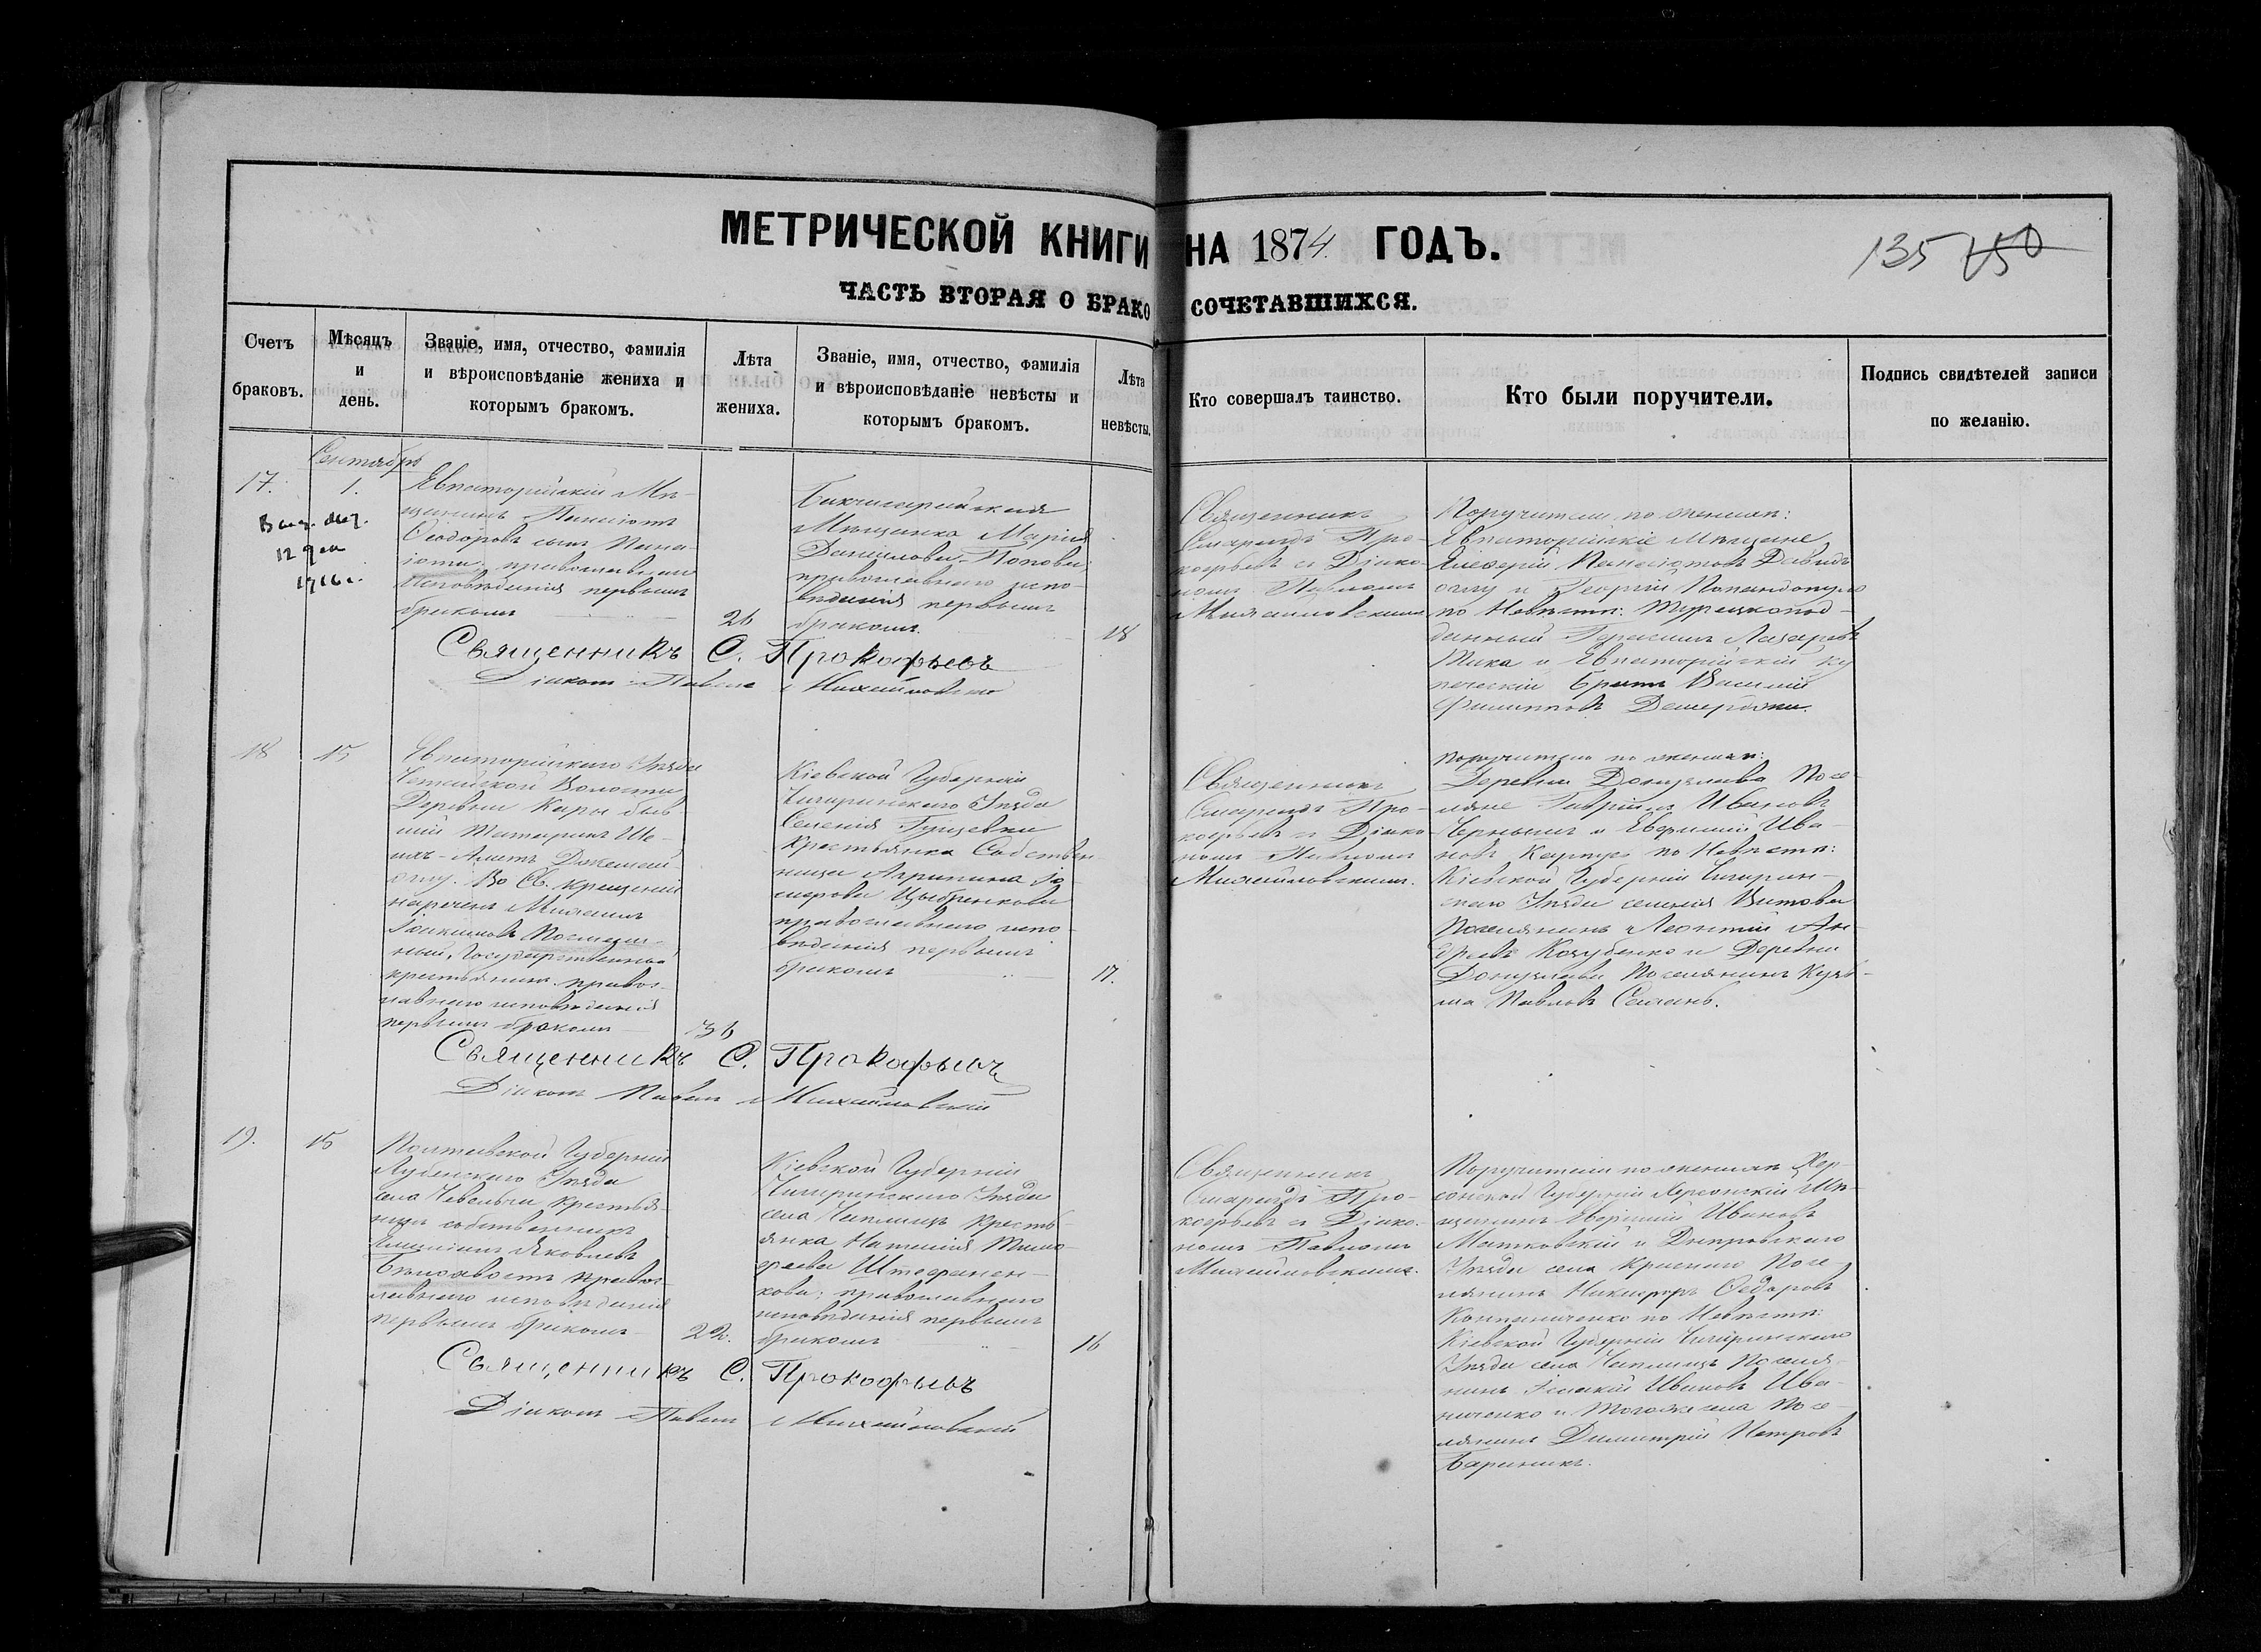 МЕТРИЧЕСКОЙ КНИГИ НА 1874 ГОДЪ.
135 150
ЧАСТЬ ВТОРАЯ О БРАКОСОЧЕТАВШИХСЯ.
Счетъ браковъ.
Мѣсяцъ и день.
Званіе, имя, отчество, фамилія
и вѣроисповѣданіе жениха и
которымъ бракомъ.
Лѣта
жениха.
Званіе, имя, отчество, фамилія
и вѣроисповѣданіе невѣсты и
которымъ бракомъ.
Лѣта
невѣсты.
Кто совершалъ таинство.
Кто были поручители.
Подпись свидѣтелей записи
по желанію.
Сентябрь
17.
1.
12 дек
1916 г.
Евпаторійскій Мѣ-
щанинъ Панаіотъ
Ѳеодоровъ сынъ Пана-
іоти, православнаго
исповѣданія первымъ
бракомъ
26
Бахчисарайская
Мѣщанка Марія
Данилова Попова
православнаго испо-
вѣданія первымъ
бракомъ.
18
Священникъ
Смарагдъ Про-
кофьевъ съ Діако-
номъ Павломъ
Михайловскимъ
Поручители по женихѣ:
Евпаторійскіе Мѣщане
Панаіотовъ Давидъ
оглу и Георгій Попандопуло
по Невѣстѣ: Турецкопод-
данный Герасимъ Лазаревъ
и Евпаторійскій ку
печескій братъ Василій
Филипповъ
Священникъ С. Прокофьевъ
Діаконъ Павелъ Михайловскій
18
15
Евпаторійскаго Уѣзда
Волости
Деревни Кары быв-
шій Татаринъ Ше-
ихъ-Аметъ
оглу. Во Св. Крещеніи
нареченъ Михаилъ
Іоакимовъ
Государственный
крестьянинъ правос-
лавнаго исповѣданія
первымъ бракомъ
36
Кіевской Губерніи
Чигиринскаго Уѣзда
Селенія
Крестьянка Собствен
ница Агрипина
Цыбренкова
православнаго испо-
вѣданія первымъ
бракомъ
17.
Священникъ
Смарагдъ Про-
кофьевъ съ Діако
номъ Павломъ
Михайловскимъ.
поручители по женихѣ:
Деревни Донузлава Посе-
ляне Гавріилъ Ивановъ
Чернышъ и Евфимій Ива-
новъ по Невѣстѣ:
Кіевской Губерніи Чигирин-
скаго Уѣзда селенія
Поселянинъ Леонтій Ан-
дреевъ Козубенко и Деревни
Донузлава Поселянинъ Кузь-
ма Павловъ
Священникъ С. Прокофьевъ
Діаконъ Павелъ Михайловскій
19.
15
Полтавской Губерніи
Лубенскаго Уѣзда
села Чевельчи Крестья-
нинъ собственникъ
Яковлевъ
православ-
лавнаго исповѣданія
первымъ бракомъ
22.
Кіевской Губерніи
Чигиринскаго Уѣзда
села Кресть-
янка Наталія Тимо-
феева Штефанен-
кова; православнаго
исповѣданія первымъ
бракомъ
16
Священникъ
Смарагдъ Про-
кофьевъ съ Діако-
номъ Павломъ
Михайловскимъ.
Поручители по женихѣ Хер-
сонской Губерніи Херсонскій Мѣ-
щанинъ Евфимій Ивановъ
Матковскій и Днѣпровскаго
Уѣзда села Посе-
лянинъ Никифоръ Ѳедоровъ
по Невѣстѣ:
Кіевской Губерніи Чигиринскаго
Уѣзда села Поселя-
нинъ Ивановъ Ива-
ниченко и Тогоже села Посе-
лянинъ Димитрій Петровъ
Священникъ С. Прокофьевъ
Діаконъ Павелъ Михайловскій